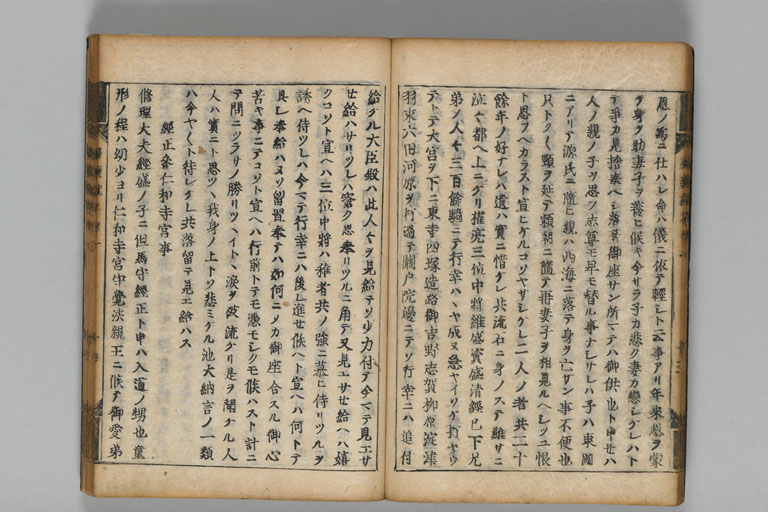 恩ノ為ニ仕ハレ命ハ儀ニ依テ軽シト云事アリ年来恩ヲ蒙
テ身ヲ助妻子ヲ養ヒ候キ今サラ子カ悲ク妻カ恋シケレハト
テ争カ見捨奉ヘシ落着御座サン所マテハ御供也ト申セハ
人ノ親ノ子ヲ思フ志尊モ卑モ替ル事ナシサレハ子ハ東国
ニアリテ源氏ニ随ヒ親ハ西海ニ落テ身ヲ亡サン事不便也
只トク〳〵頸ヲ延テ頼朝ニ随テ再妻子ヲ相見ルヘシツユ恨
ト思フヘカラスト宣ヒケルコソヤサシケレ二人ノ者共二十
余年ノ好ナレハ遺ハ実ニ惜ケレ共流石ニ身ノステ難サニ
泣々都ヘ上ニケリ権亮三位中将維盛資盛清経已下兄
弟ノ人々三百余騎ニテ行幸ハハヤ成ヌ急ヤイソケ打ヤウ
テトテ大宮ヲ下ニ東寺四塚造路御吉野志賀柳原淀津
羽束六田河原ヲ打過テ関戸院辺ニテソ行幸ニハ追付
給ケル大臣殿ハ此人々ヲ見給テソ少力付テ今マテ見エサ
セ給ハサリツレハ窃ク思奉リツルニ角テ又見エサセ給ヘハ嬉
クコソト宣ヘハ三位中将ハ稚者共ノ強ニ慕ヒ侍リツルヲ
誘ヘ侍ツレハ今マテ行幸ニハ後レ進セ候ヘト宣ヘハ何トテ
具シ奉給ハヌソ留置奉テハ如何ニメカ御座合スル御心
苦キ事ニテコソト宣ヘハ行前トテモ憑モシクモ候ハスト計ニ
テ問ニツラサノ勝リツヽイトヽ涙ヲ政流ケリ是ヲ聞ケル人
人ハ実ニト思ツヽ我身ノ上トソ悲ミケル池大納言ノ一類
ハ今ヤ〳〵ト待シケレ共落留テ見エ給ハス
経正参仁和寺宮事
修理大夫経盛ノ子ニ但馬守経正ト申ハ入道ノ甥也童
形ノ程ハ幼少ヨリ仁和寺宮守覚法親王ニ候テ御愛弟